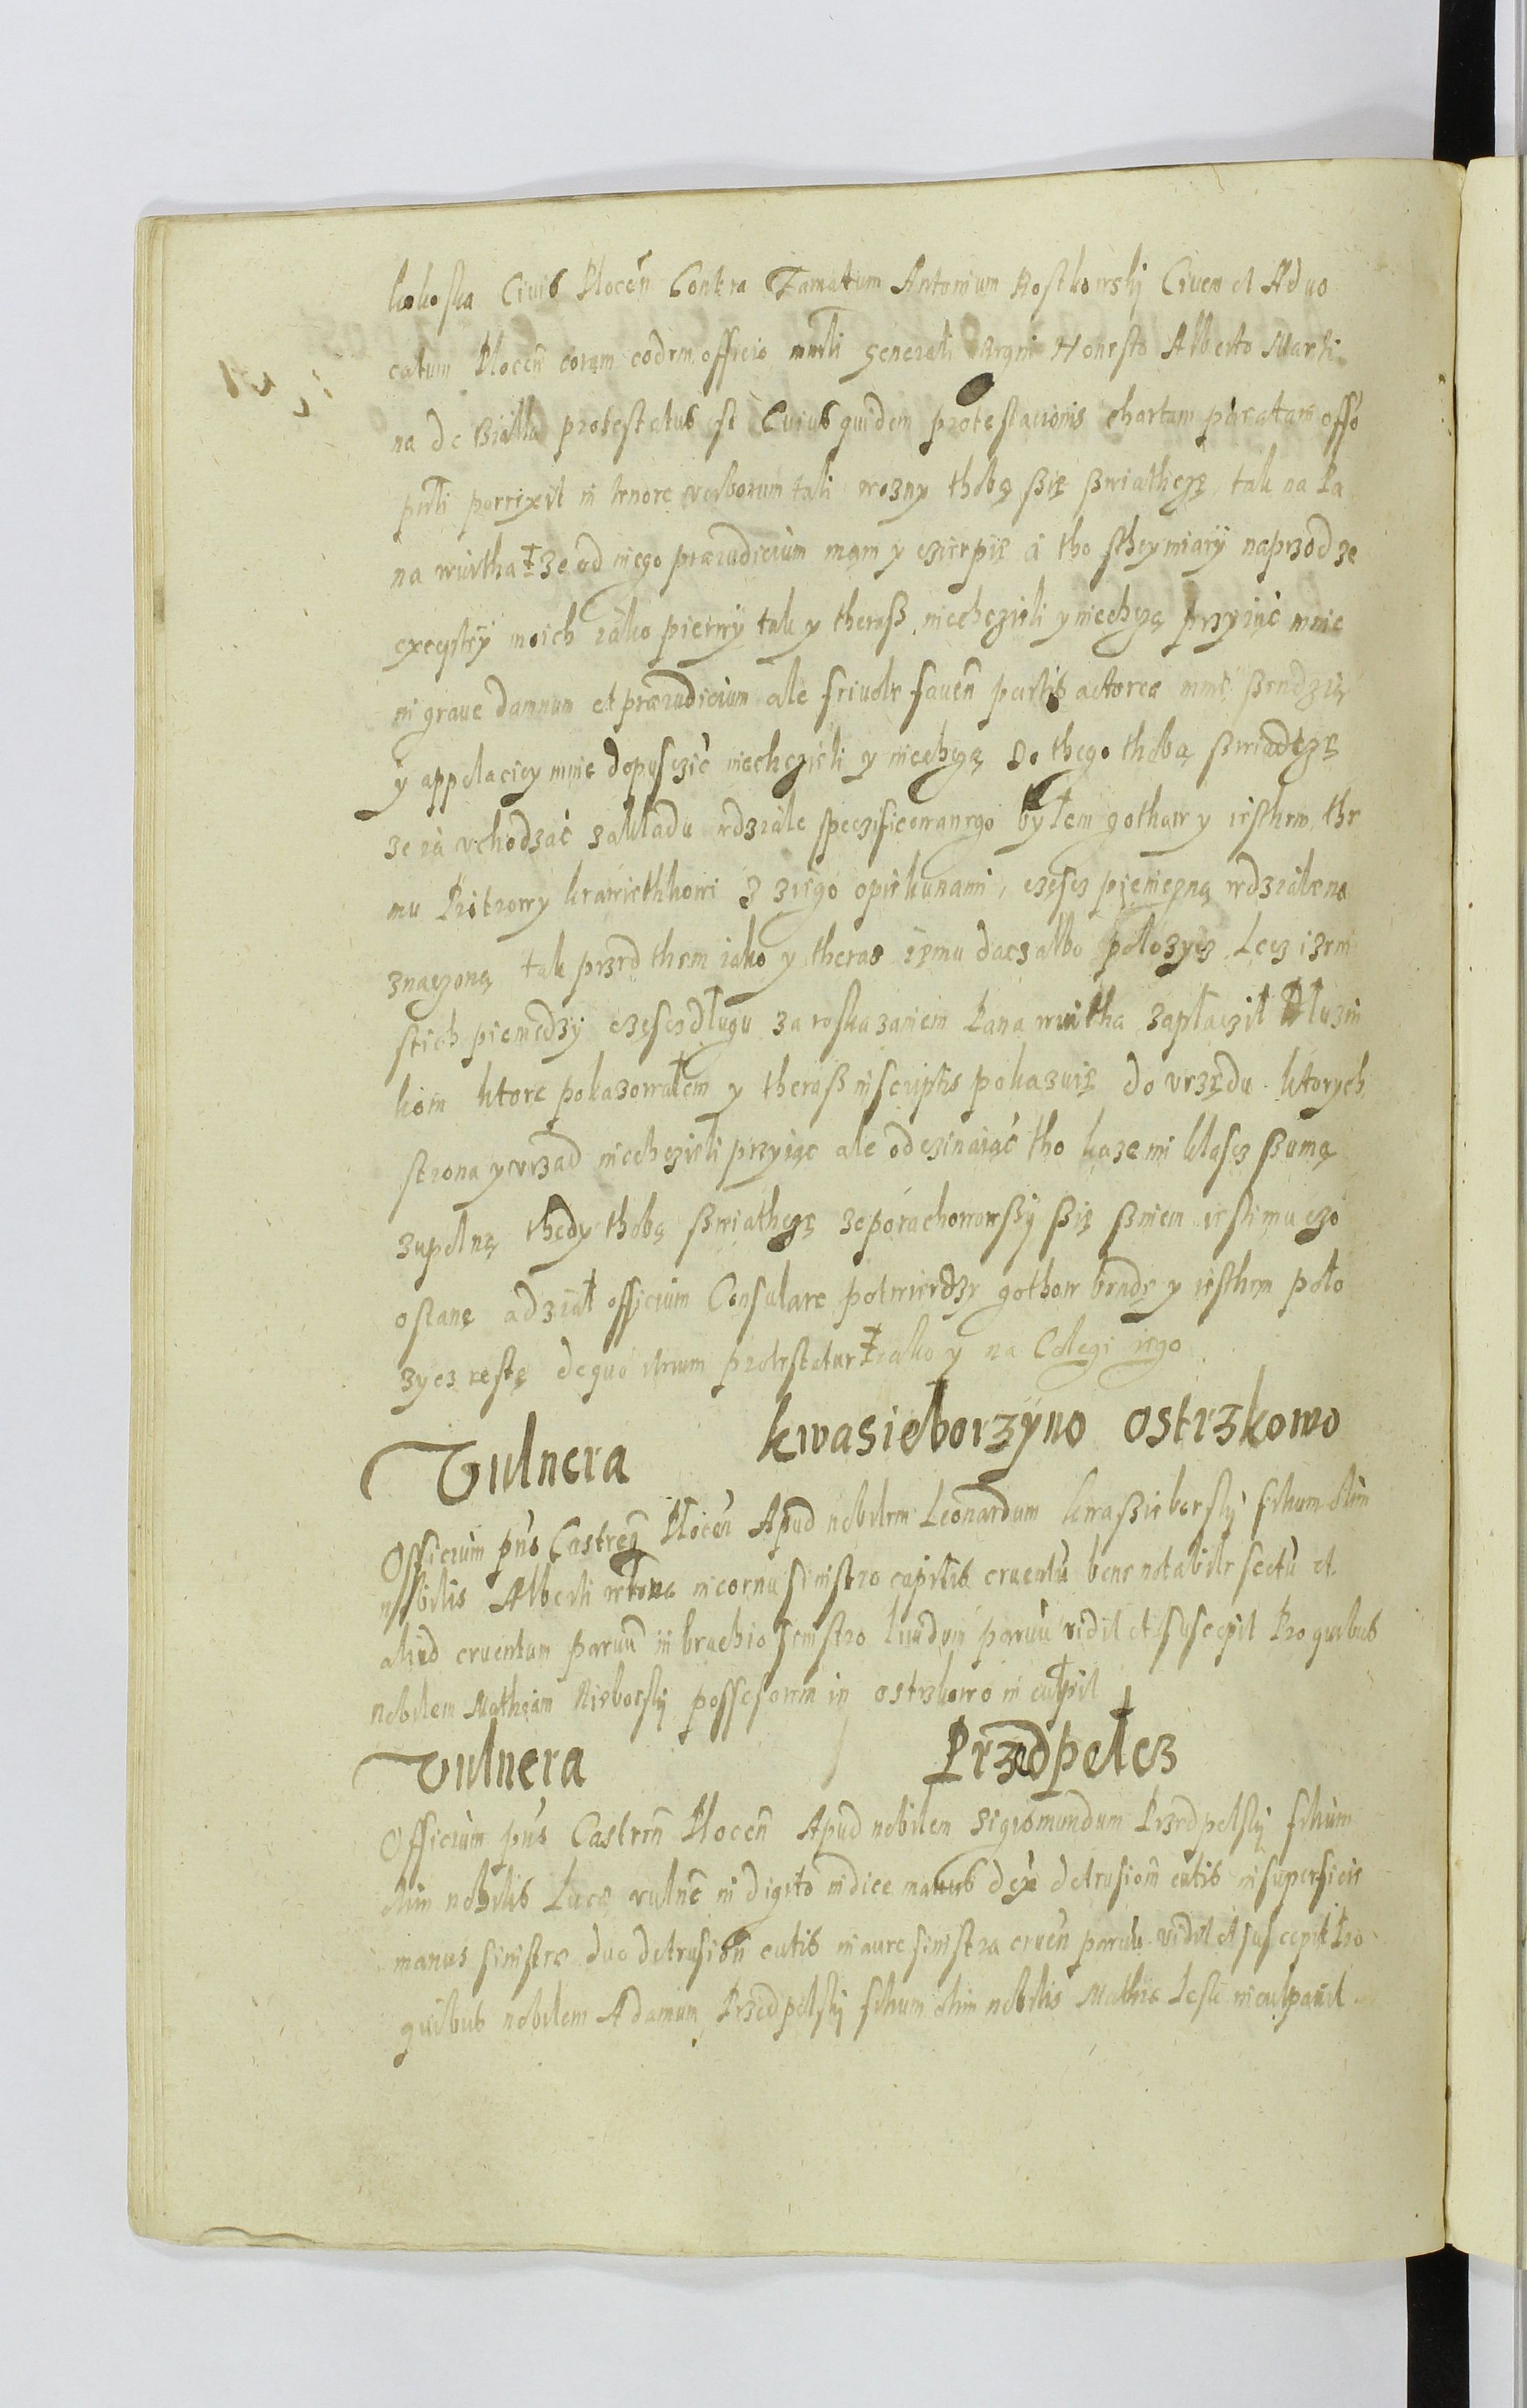 kokoska Civis Plocen̄ Contra Famatum Antonium Rostkowskÿ Civem et Aduo
catum Plocen̄ coram eodem officio mnrli generali Regni Honesto Alberto Marti
na de Bialla protestatus est Cuius quidem protestacionis chartam paratam offo
pnti porrixit in tenore verborum tali wozny thobą ßię ßwiathczę tak na Pa
na wuÿtha ‡ ze od niego præiudicium mąm y czierpię a tho sthey miarÿ naprzod ze
exceptiÿ moich iako pierwÿ tak y theraß niechczieli y niechczą przyiąc mnie
in graue damnum et præiudicium ale friuole fauen̄ partis actorea ßendzią
y appelaciey mnie dopusczić niechczieli y niechczą Do thego thobą ßwiadczę
ze ia vchodzać zakladu wdziale specificowanego byłem gothow y iesthem the
mu Piotrowy krawiethkowi z iego opiekunami, częscz pieniężną wdziale na
znaczoną tak przed them iako y theras iemu dacz albo położycz Lecz izem
stich pieniedzÿ częscz długu za roskazaniem Pana wuitha zapłacził Dłuzni
kom ktore pokazowałem y theraß in scriptis pokazuię do vrzędu ktorych
strona y vrzad niechczieli przyiąc ale odczinaiąć tho każe mi klascz ßumą
zupelną thedy thobą ßwiathczę ze porachowawßÿ ßię ßniem iesli mu czo
ostanę a dział officium Consulare potwierdzy gothow bendę y iesthem poło
zycz restę de quo iterum protestatur ‡ iako y na Colegi iego
Vulnera kwasieborzÿno ostrzkowo
Officium pn̄s Castren̄ Plocen̄ Apud nobilem Leonardum kwaßieborskÿ filium olim
nobilis Alberti in cornu sinistro capitis cruentū bene notabile sectū et
aliud cruentum paruū in brachio sinistro liuidum paruū vidit et suscepit Pro quibus
nobilem Mathiam Nieborskÿ possessorem in ostrzkowo inculpit
Vulnera Przedpełcz
Officium pn̄s Castren̄ Plocen̄ Apud nobilem Sigismundum Przedpelskÿ filium
olim nobilis Lucæ vulnē in digito indice manus dex̄ detrusionē cutis in superficie
manus sinistræ duo detrusion̄ cutis in aure sinistra cruen̄ paruū vidit et suscepit Pro
quibus nobilem Adamum Przedpelskÿ filium olim nobilis Mathiæ inculpauit